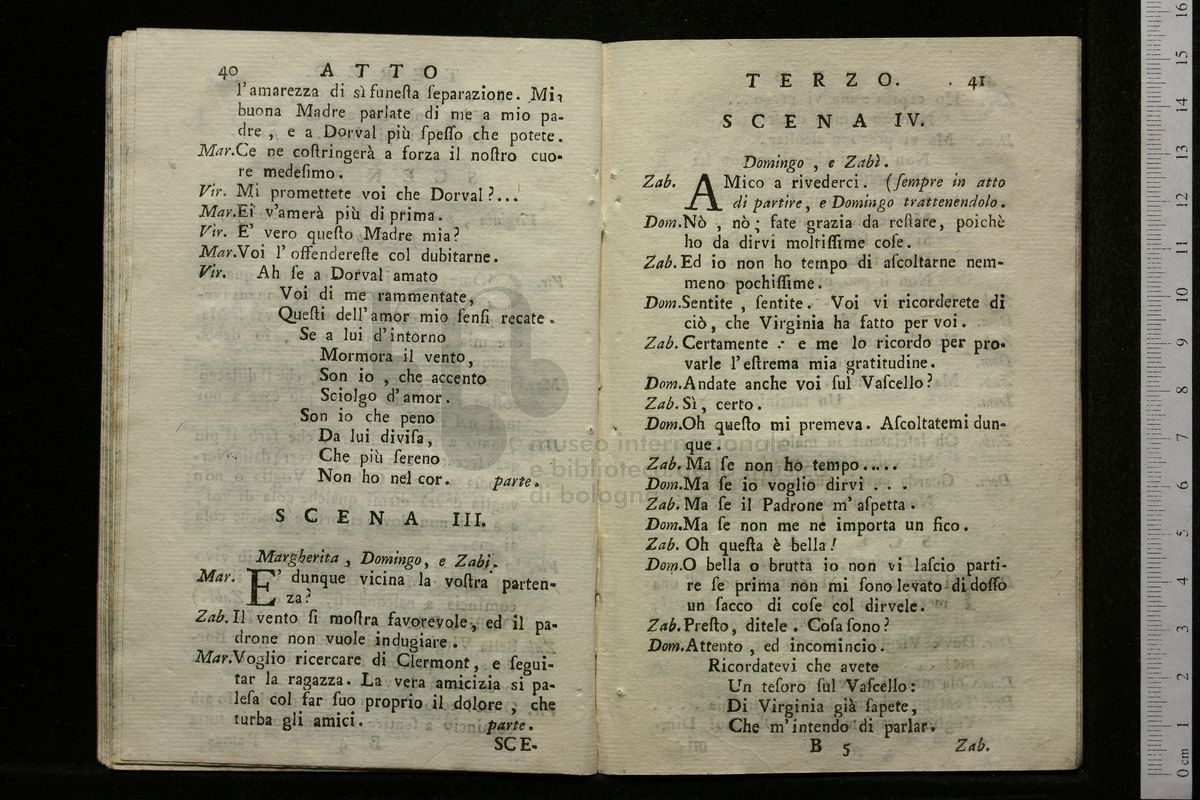 40 ATTO
l'amarezza di sì funeſta ſeparazione. Mia
buona Madre parlate di me a mio pa-
dre , e a Dorval più ſpeſſo che potete.
Mar.Ce ne coſtringerà a forza il noſtro cuo-
re medeſimo.
Vir. Mi promettete voi che Dorval?...
Mar.Ei v'amerà più di prima.
Vir. E' vero queſto Madre mia?
Mar.Voi l' offendereſte col dubitarne.
Vir. Ah ſe a Dorval amato
Voi di me rammentate,
Queſti dell'amor mio ſenſi recate.
Se a lui d'intorno
Mormora il vento,
Son io , che accento
Sciolgo d'amor.
Son io che peno
Da lui diviſa,
Che più ſereno
Non ho nel cor. parte.
SCENA III.
Margherita , Domingo, e Zabì.
Mar. E' dunque vicina la voſtra parten-
za?
Zab. Il vento ſi moſtra favorevole, ed il pa-
drone non vuole indugiare.
Mar.Voglio ricercare di Clermont, e ſegui-
tar la ragazza. La vera amicizia si pa-
leſa col far ſuo proprio il dolore , che
turba gli amici. parte.
SCE-
TERZO. 41
SCENA IV.
Domingo , e Zabì.
Zab. AMico a rivederci. (ſempre in atto
di partire, e Domingo trattenendolo.
Dom.Nò , nò; fate grazia da reſtare, poichè
ho da dirvi moltiſſime coſe.
Zab. Ed io non ho tempo di aſcoltarne nem-
meno pochiſſime.
Dom.Sentite , ſentite. Voi vi ricorderete di
ciò, che Virginia ha fatto per voi.
Zab. Certamente : e me lo ricordo per pro-
varle l'eſtrema mia gratitudine.
Dom.Andate anche voi ſul Vaſcello?
Zab. Sì, certo.
Dom.Oh queſto mi premeva. Aſcoltatemi dun-
que.
Zab. Ma ſe non ho tempo.....
Dom.Ma ſe io voglio dirvi . . .
Zab. Ma ſe il Padrone m' aſpetta.
Dom.Ma ſe non me ne importa un fico.
Zab. Oh queſta è bella!
Dom.O bella o brutta io non vi laſcio parti-
re ſe prima non mi ſono levato di doſſo
un ſacco di coſe col dirvele.
Zab. Preſto, ditele. Coſa ſono?
Dom.Attento , ed incomincio.
Ricordatevi che avete
Un teſoro ſul Vaſcello:
Di Virginia già ſapete,
Che m'intendo di parlar.
B 5 Zab.
museo internazionale
e biblioteca della musica
di bologna
16
15
14
13
12
11
10
9
8
7
6
5
4
3
2
1
0 cm